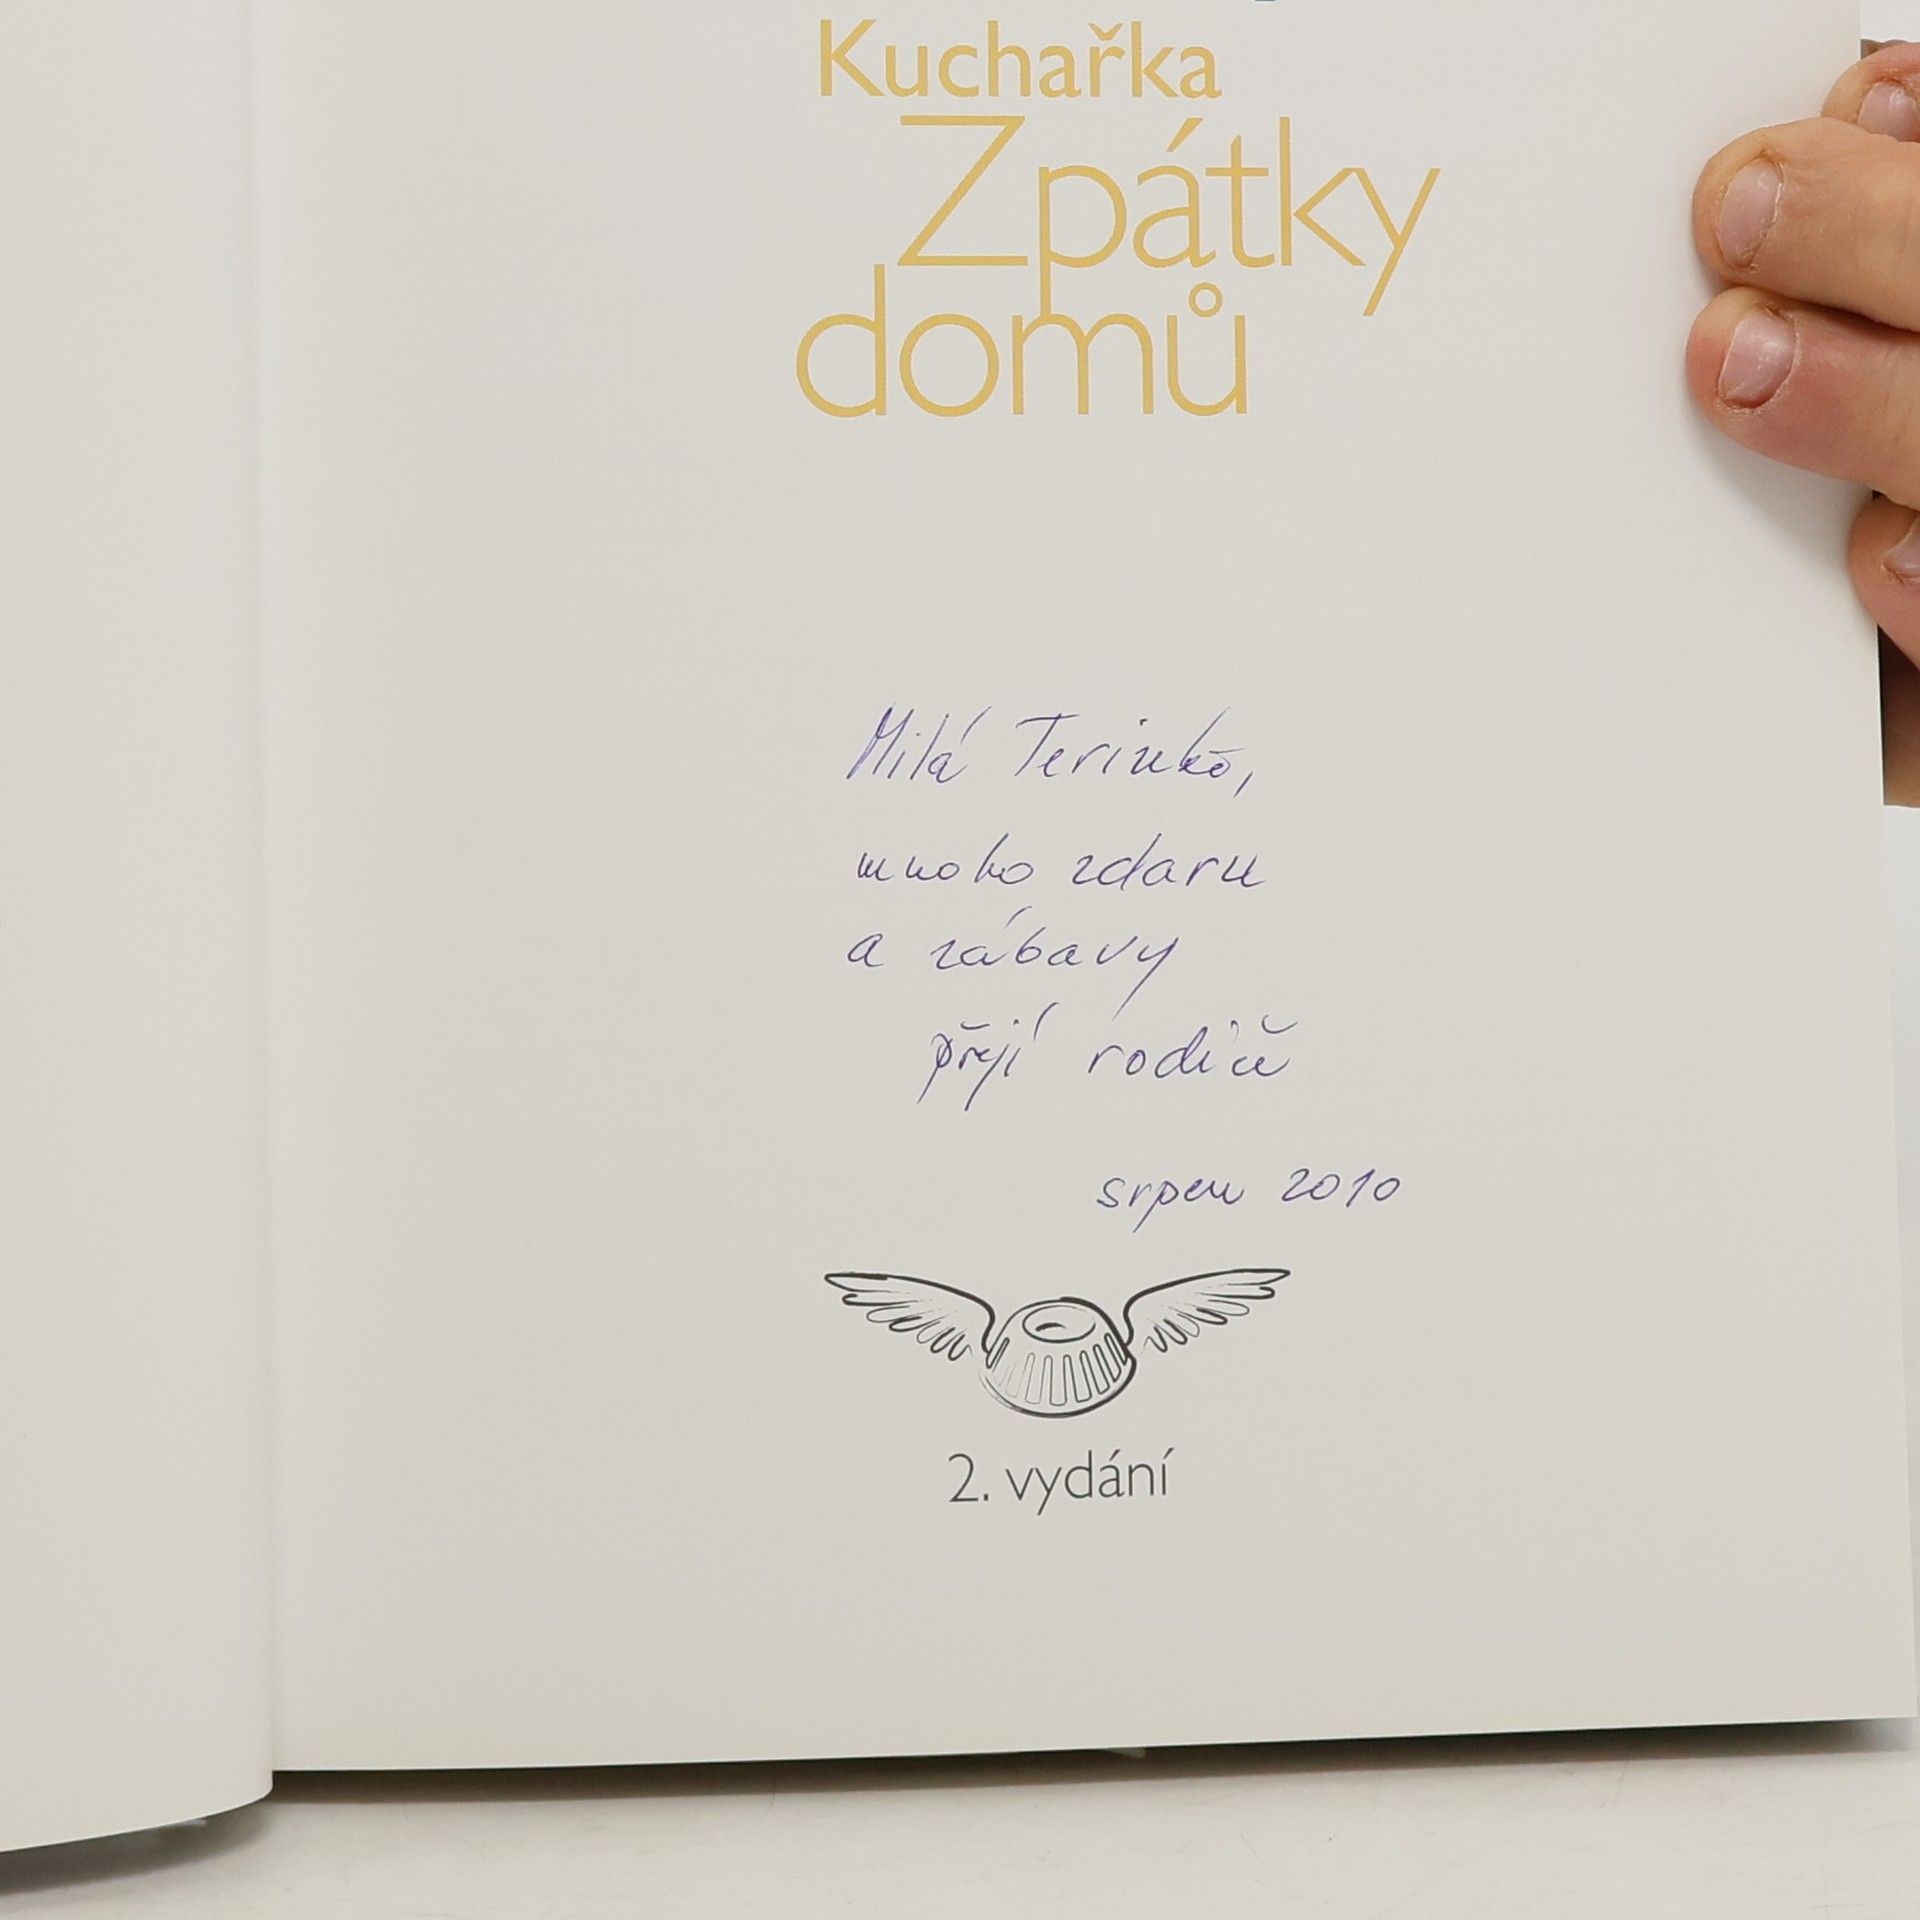 Kuchařka
Zpátky
domů
Milá Terinko,
mnoho zdaru
a zábavy
přejí rodiče
srpen 2010
2. vydání